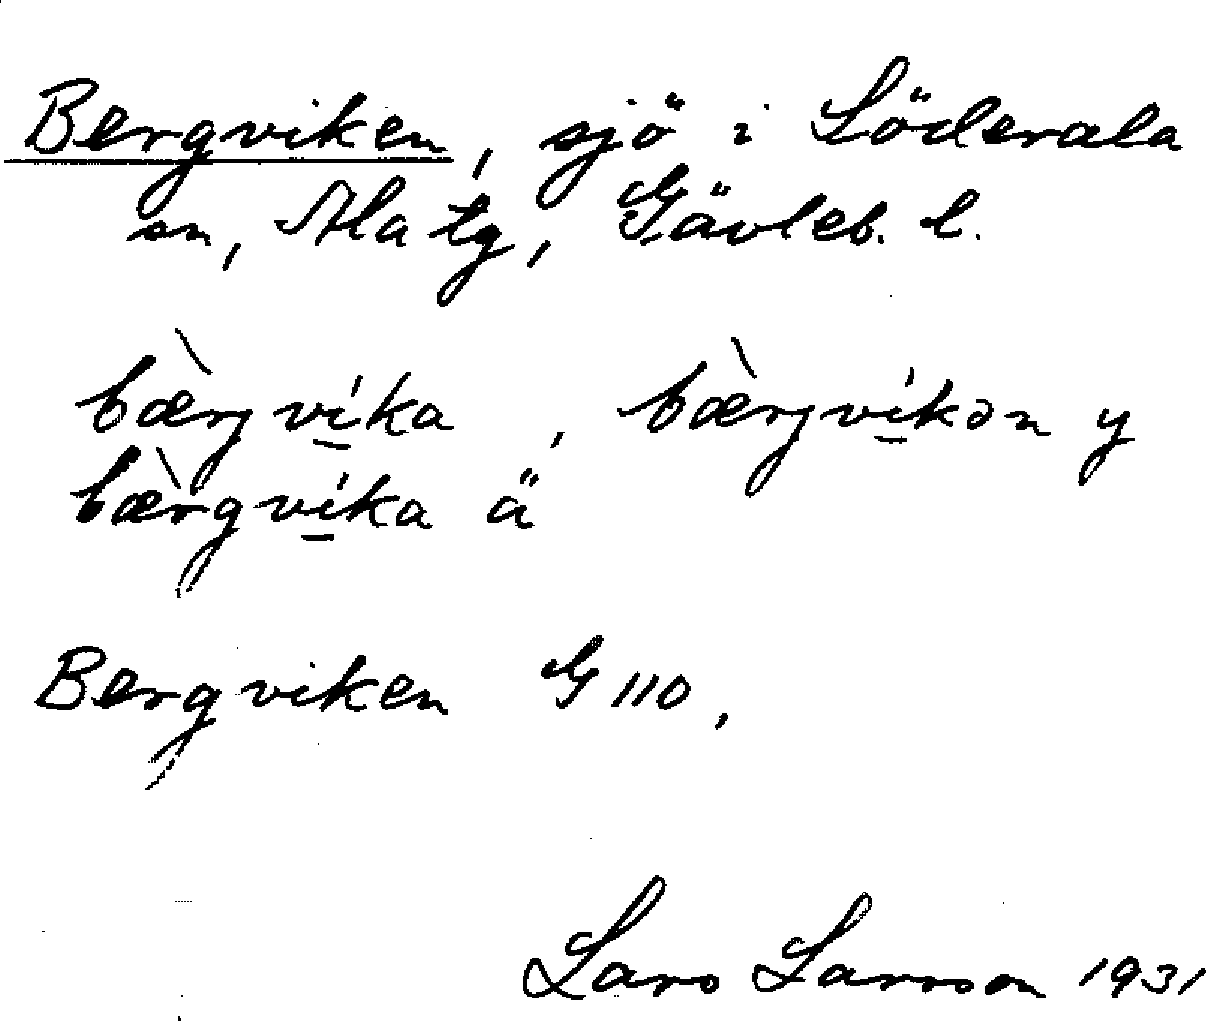 Bergviken, sjö i Söderala
sn, Ala tg, Gävleb. l.
bæ̀rgví̱ka, bæ̀rgví̱kən y
bæ̀rgví̱ka ä
Bergviken G 110,
Lars Larsson 1931